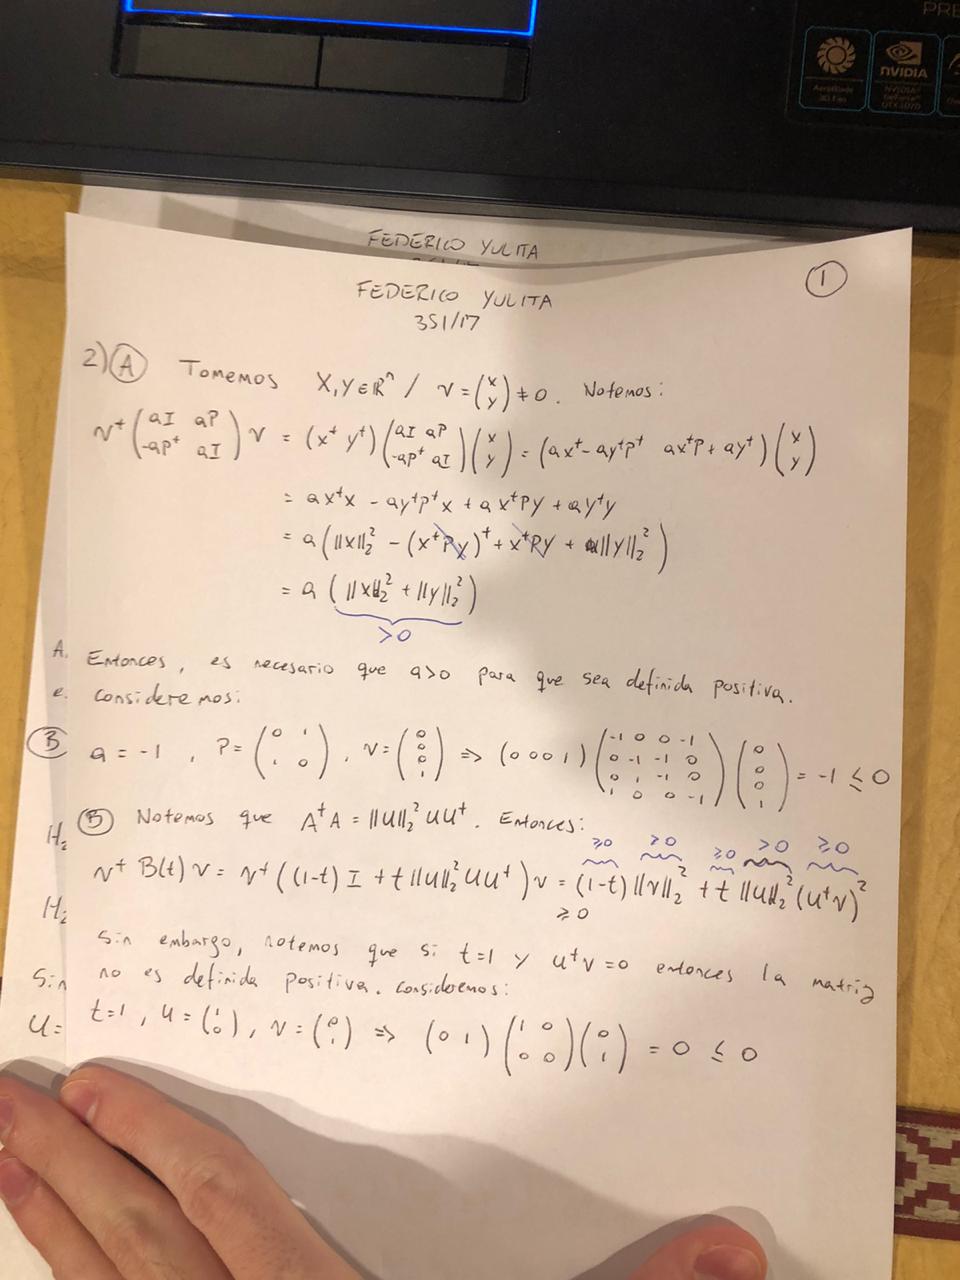 PRE
NVIDIA
FEDERICO YULITA
FEDERICO YULITA
351/17
1
2) A Tomemos X,Y∈ℝⁿ / v = (x y) ≠ 0. Notemos:
vᵗ (aI aP -aPᵗ aI) v = (xᵗ yᵗ) (aI aP -aPᵗ aI) (x y) = (axᵗ - ayᵗPᵗ axᵗP + ayᵗ) (x y)
= axᵗx - ayᵗPᵗx + axᵗPy + ayᵗy
= a (||x||₂² - (xᵗPy)ᵗ + xᵗPy + ||y||₂²)
= a (||x||₂² + ||y||₂²)
>0
A. Entonces, es necesario que a>0 para que sea definida positiva.
e. Consideremos:
B a = -1, P = (0 1 1 0), v = (0 0 0 1) ⇒ (0 0 0 1) (-1 0 0 -1 0 -1 -1 0 0 1 -1 0 1 0 0 -1) (0 0 0 1) = -1 ≤ 0
B Notemos que AᵗA = ||u||₂² uuᵗ. Entonces:
≥0 ≥0 ≥0 >0 ≥0
vᵗ B(t) v = vᵗ ((1-t) I + t ||u||₂² uuᵗ) v = (1-t) ||v||₂² + t ||u||₂² (uᵗv)²
≥0
Sin embargo, notemos que si t=1 y uᵗv=0 entonces la matriz
no es definida positiva. Consideremos:
t=1, u = (1 0), v = (0 1) ⇒ (0 1) (1 0 0 0) (0 1) = 0 ≤ 0
H₂
H₂
Sin
U=